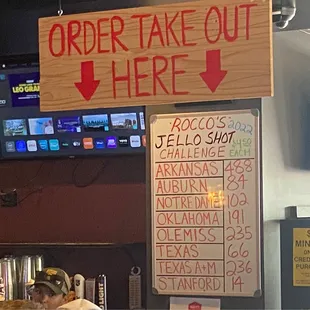 ORDER TAKE OUT
HERE
ROCCO'S 2022
JELLO SHOT
CHALLENGE EACH
ARKANSAS 488
AUBURN 84
NOTRE DAME 102
OKLAHOMA 191
OLE MISS 235
TEXAS 66
TEXAS A+M 236
STANFORD 14